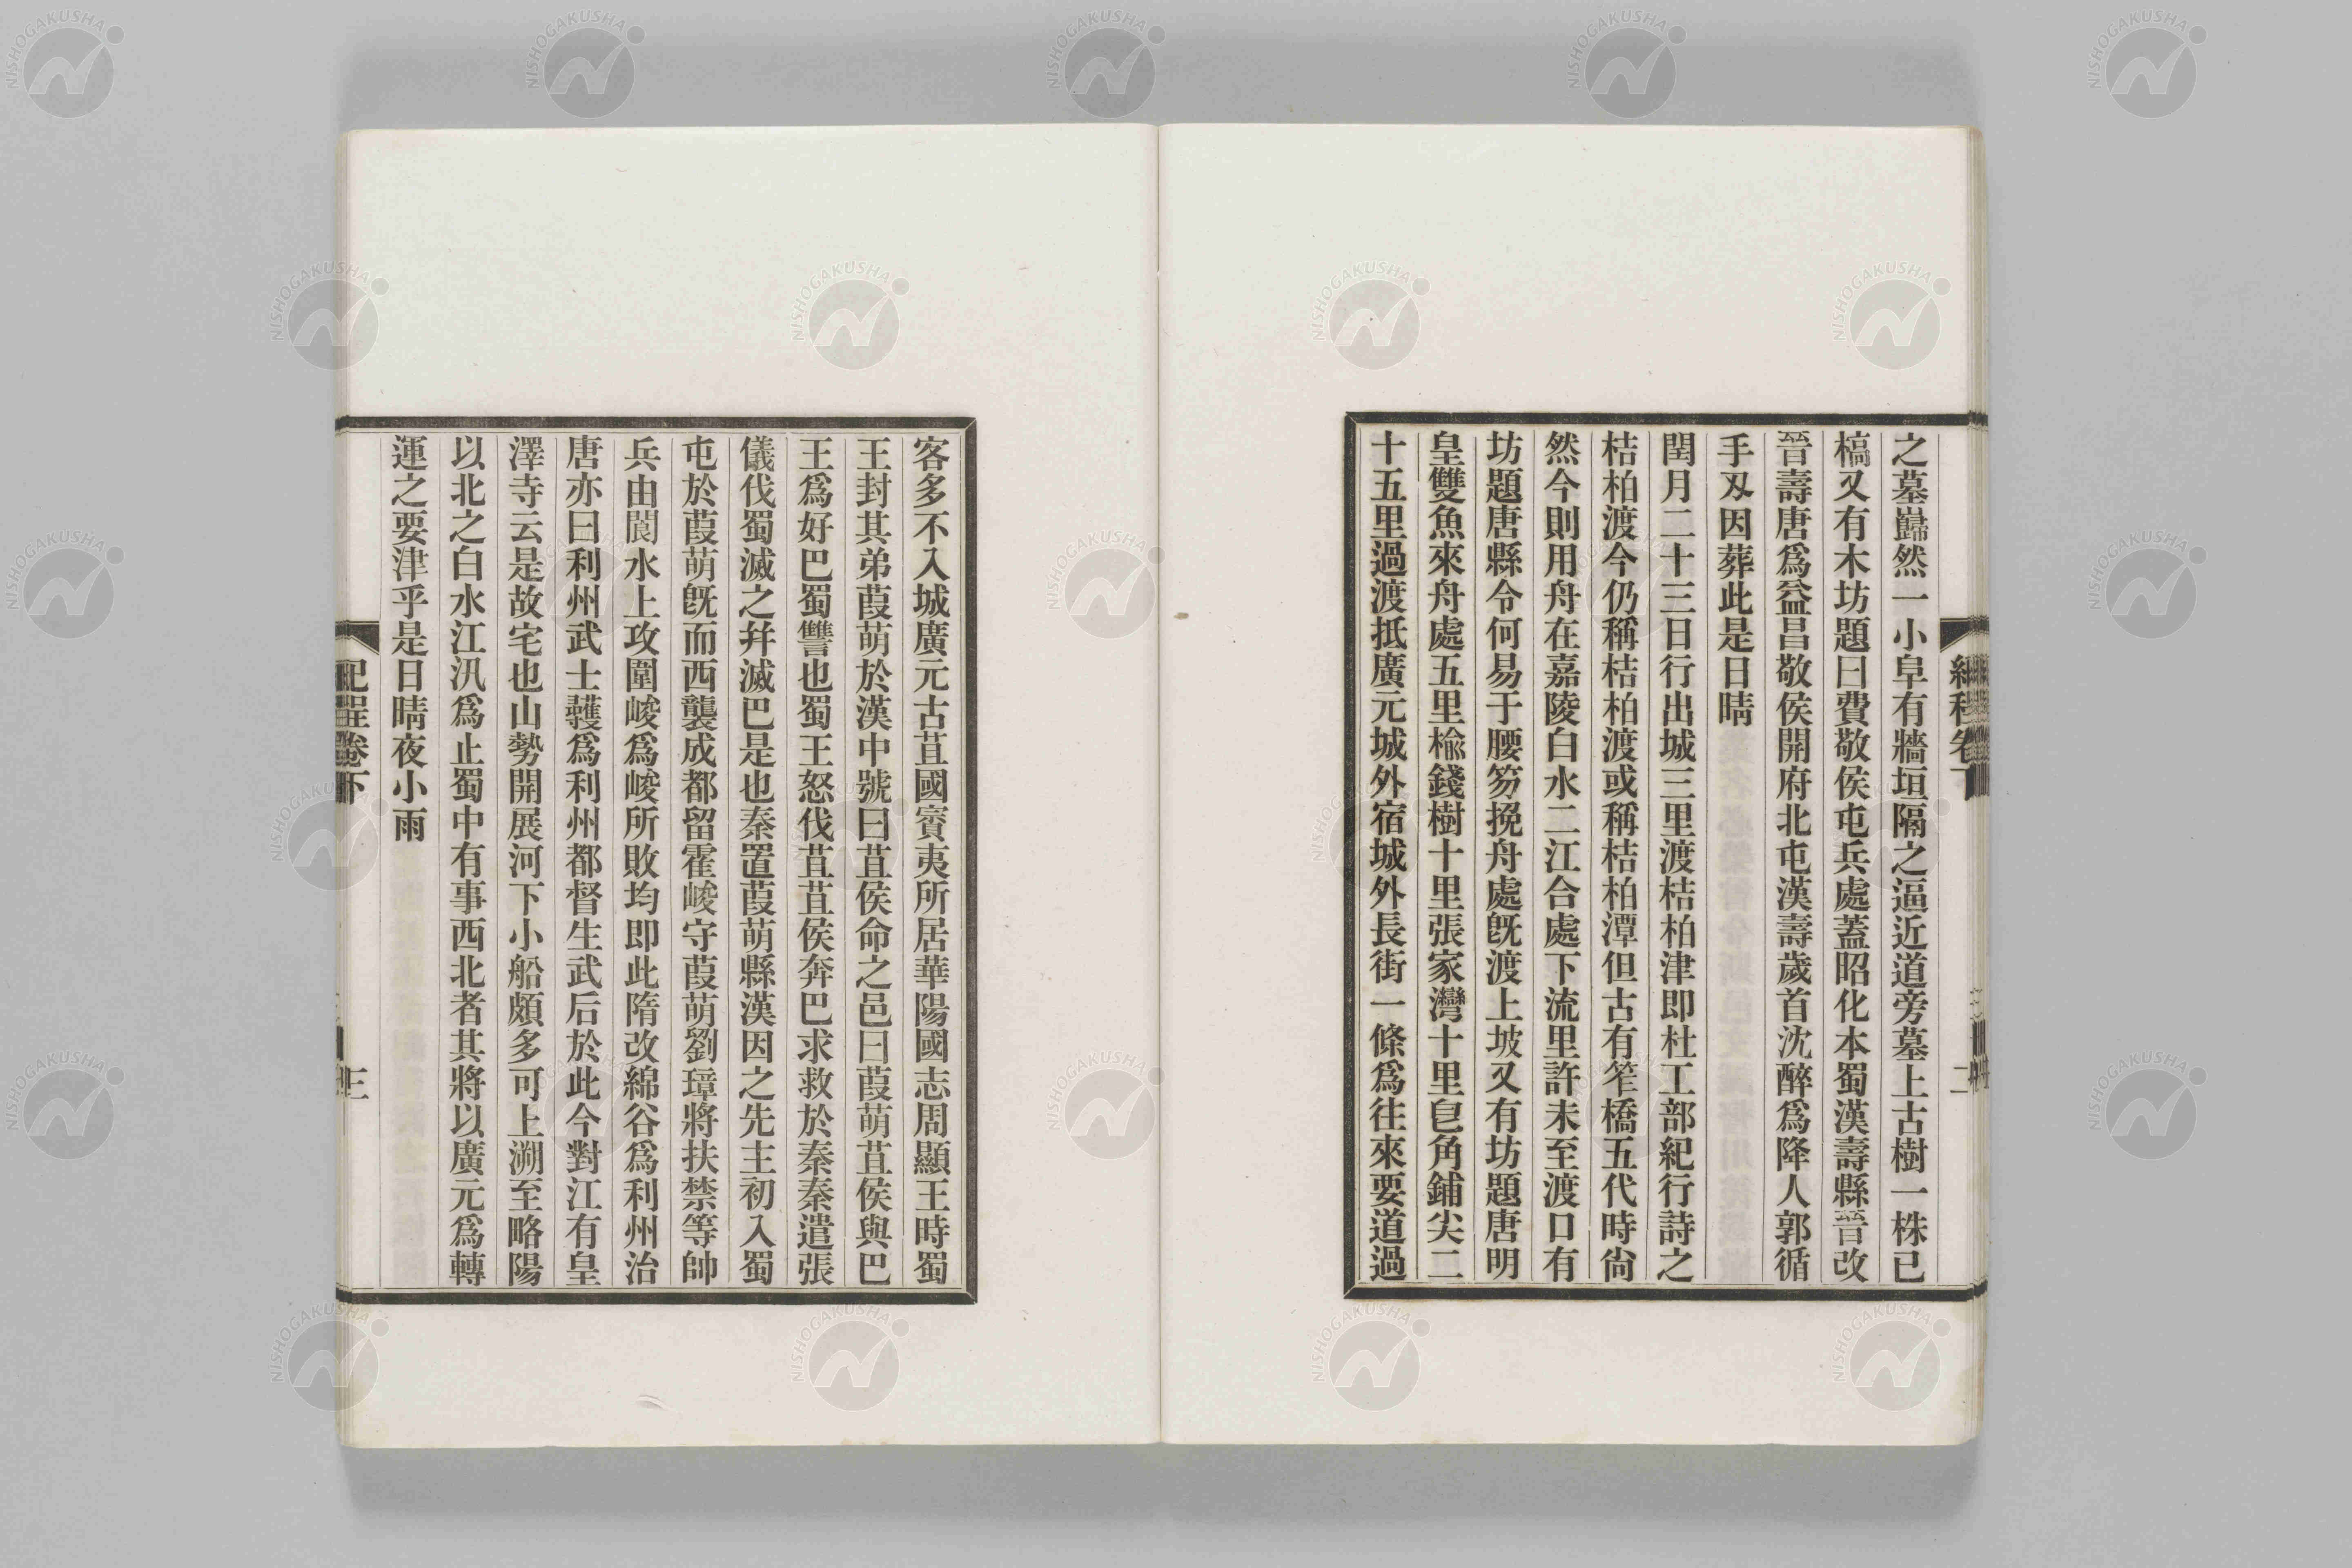 之墓巋然一小阜有牆垣隔之逼近道旁墓上古樹一株已
槁又有木坊題曰費敬侯屯兵處蓋昭化本蜀漢壽縣晉改
晉壽唐爲益昌敬侯開府北屯漢壽歲首沈醉爲降人郭循
手刃因葬此是日晴
閏月二十三日行出城三里渡桔柏津即杜工部紀行詩之
桔柏渡今仍稱桔柏渡或稱桔柏潭但古有笮橋五代時尙
然今則用舟在嘉陵白水二江合處下流里許未至渡口有
坊題唐縣令何易于腰笏挽舟處旣渡上坡又有坊題唐明
皇雙魚來舟處五里楡錢樹十里張家灣十里皀角鋪尖二
十五里過渡抵廣元城外宿城外長街一條爲往來要道過
客多不入城廣元古苴國賨夷所居華陽國志周顯王時蜀
王封其弟葭萌於漢中號曰苴侯命之邑曰葭萌苴侯與巴
王爲好巴蜀讐也蜀王怒伐苴苴侯奔巴求救於秦秦遣張
儀伐蜀滅之幷滅巴是也秦置葭萌縣漢因之先主初入蜀
屯於葭萌旣而西襲成都留霍峻守葭萌劉璋將扶禁等帥
兵由閬水上攻圍峻爲峻所敗均即此隋改綿谷爲利州治
唐亦曰利州武士彠爲利州都督生武后於此今對江有皇
澤寺云是故宅也山勢開展河下小船頗多可上溯至略陽
以北之白水江汛爲止蜀中有事西北者其將以廣元爲轉
運之要津乎是日晴夜小雨
紀程卷下
三
NISHOGAKUSHA